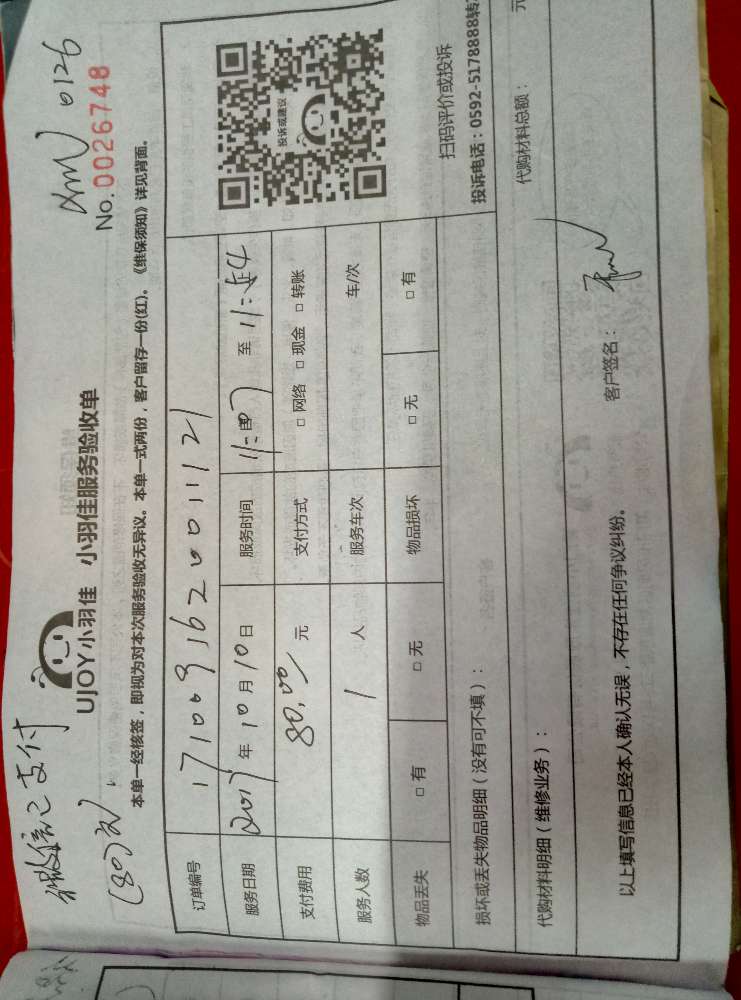 微信已支付
(80元)
XMN 0126
No.0026748
UJOY小羽佳 小羽佳服务验收单
本单一经核签，即视为对本次服务验收无异议。本单一式两份，客户留存一份(红)。《维保须知》详见背面。
订单编号 171009162001121
服务日期 2017年10月10日 服务时间 至 11:54
支付费用 80.00元 支付方式 □网络 □现金 □转账
服务人数 1 人 服务车次 车/次
物品丢失 □有 □无 物品损坏 □无 □有
投诉或建议
扫码评价或投诉
投诉电话：0592-5178888转
损坏或丢失物品明细（没有可不填）：
代购材料明细（维修业务）： 代购材料总额： 元
以上填写信息已经本人确认无误，不存在任何争议纠纷。
客户签名：